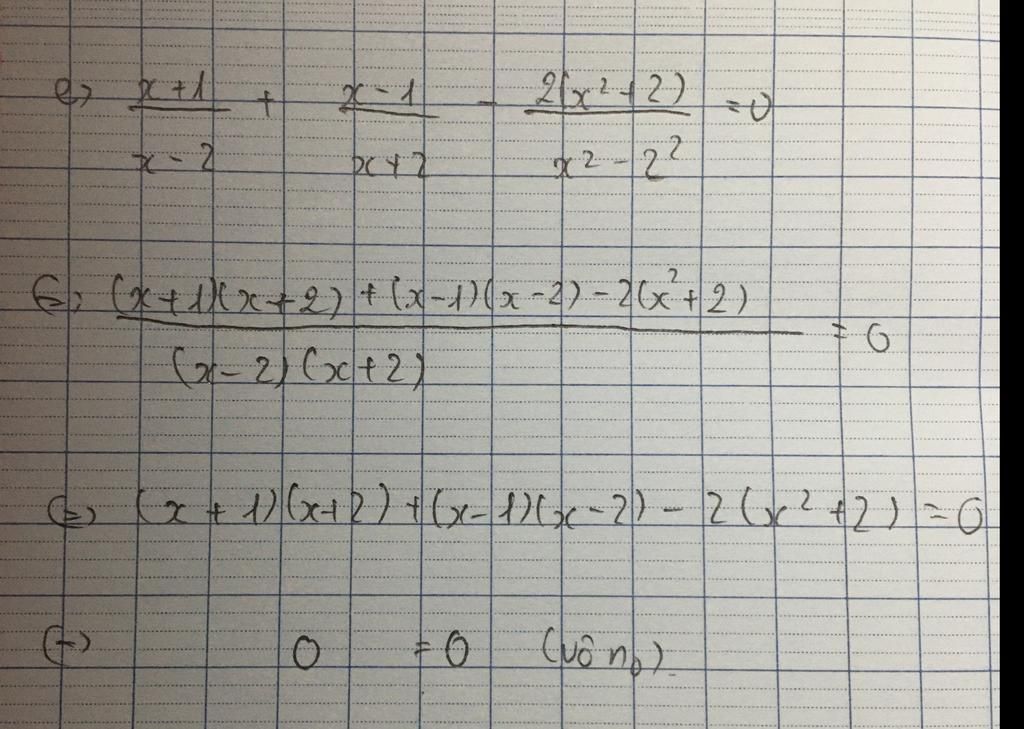 e) (x+1)/(x-2) + (x-1)/(x+2) - 2(x²+2)/(x²-2²) = 0
⇔ ((x+1)(x+2)+(x-1)(x-2)-2(x²+2))/((x-2)(x+2)) = 0
⇔ (x+1)(x+2)+(x-1)(x-2)-2(x²+2) = 0
⇔ 0 = 0 (vô n₀)